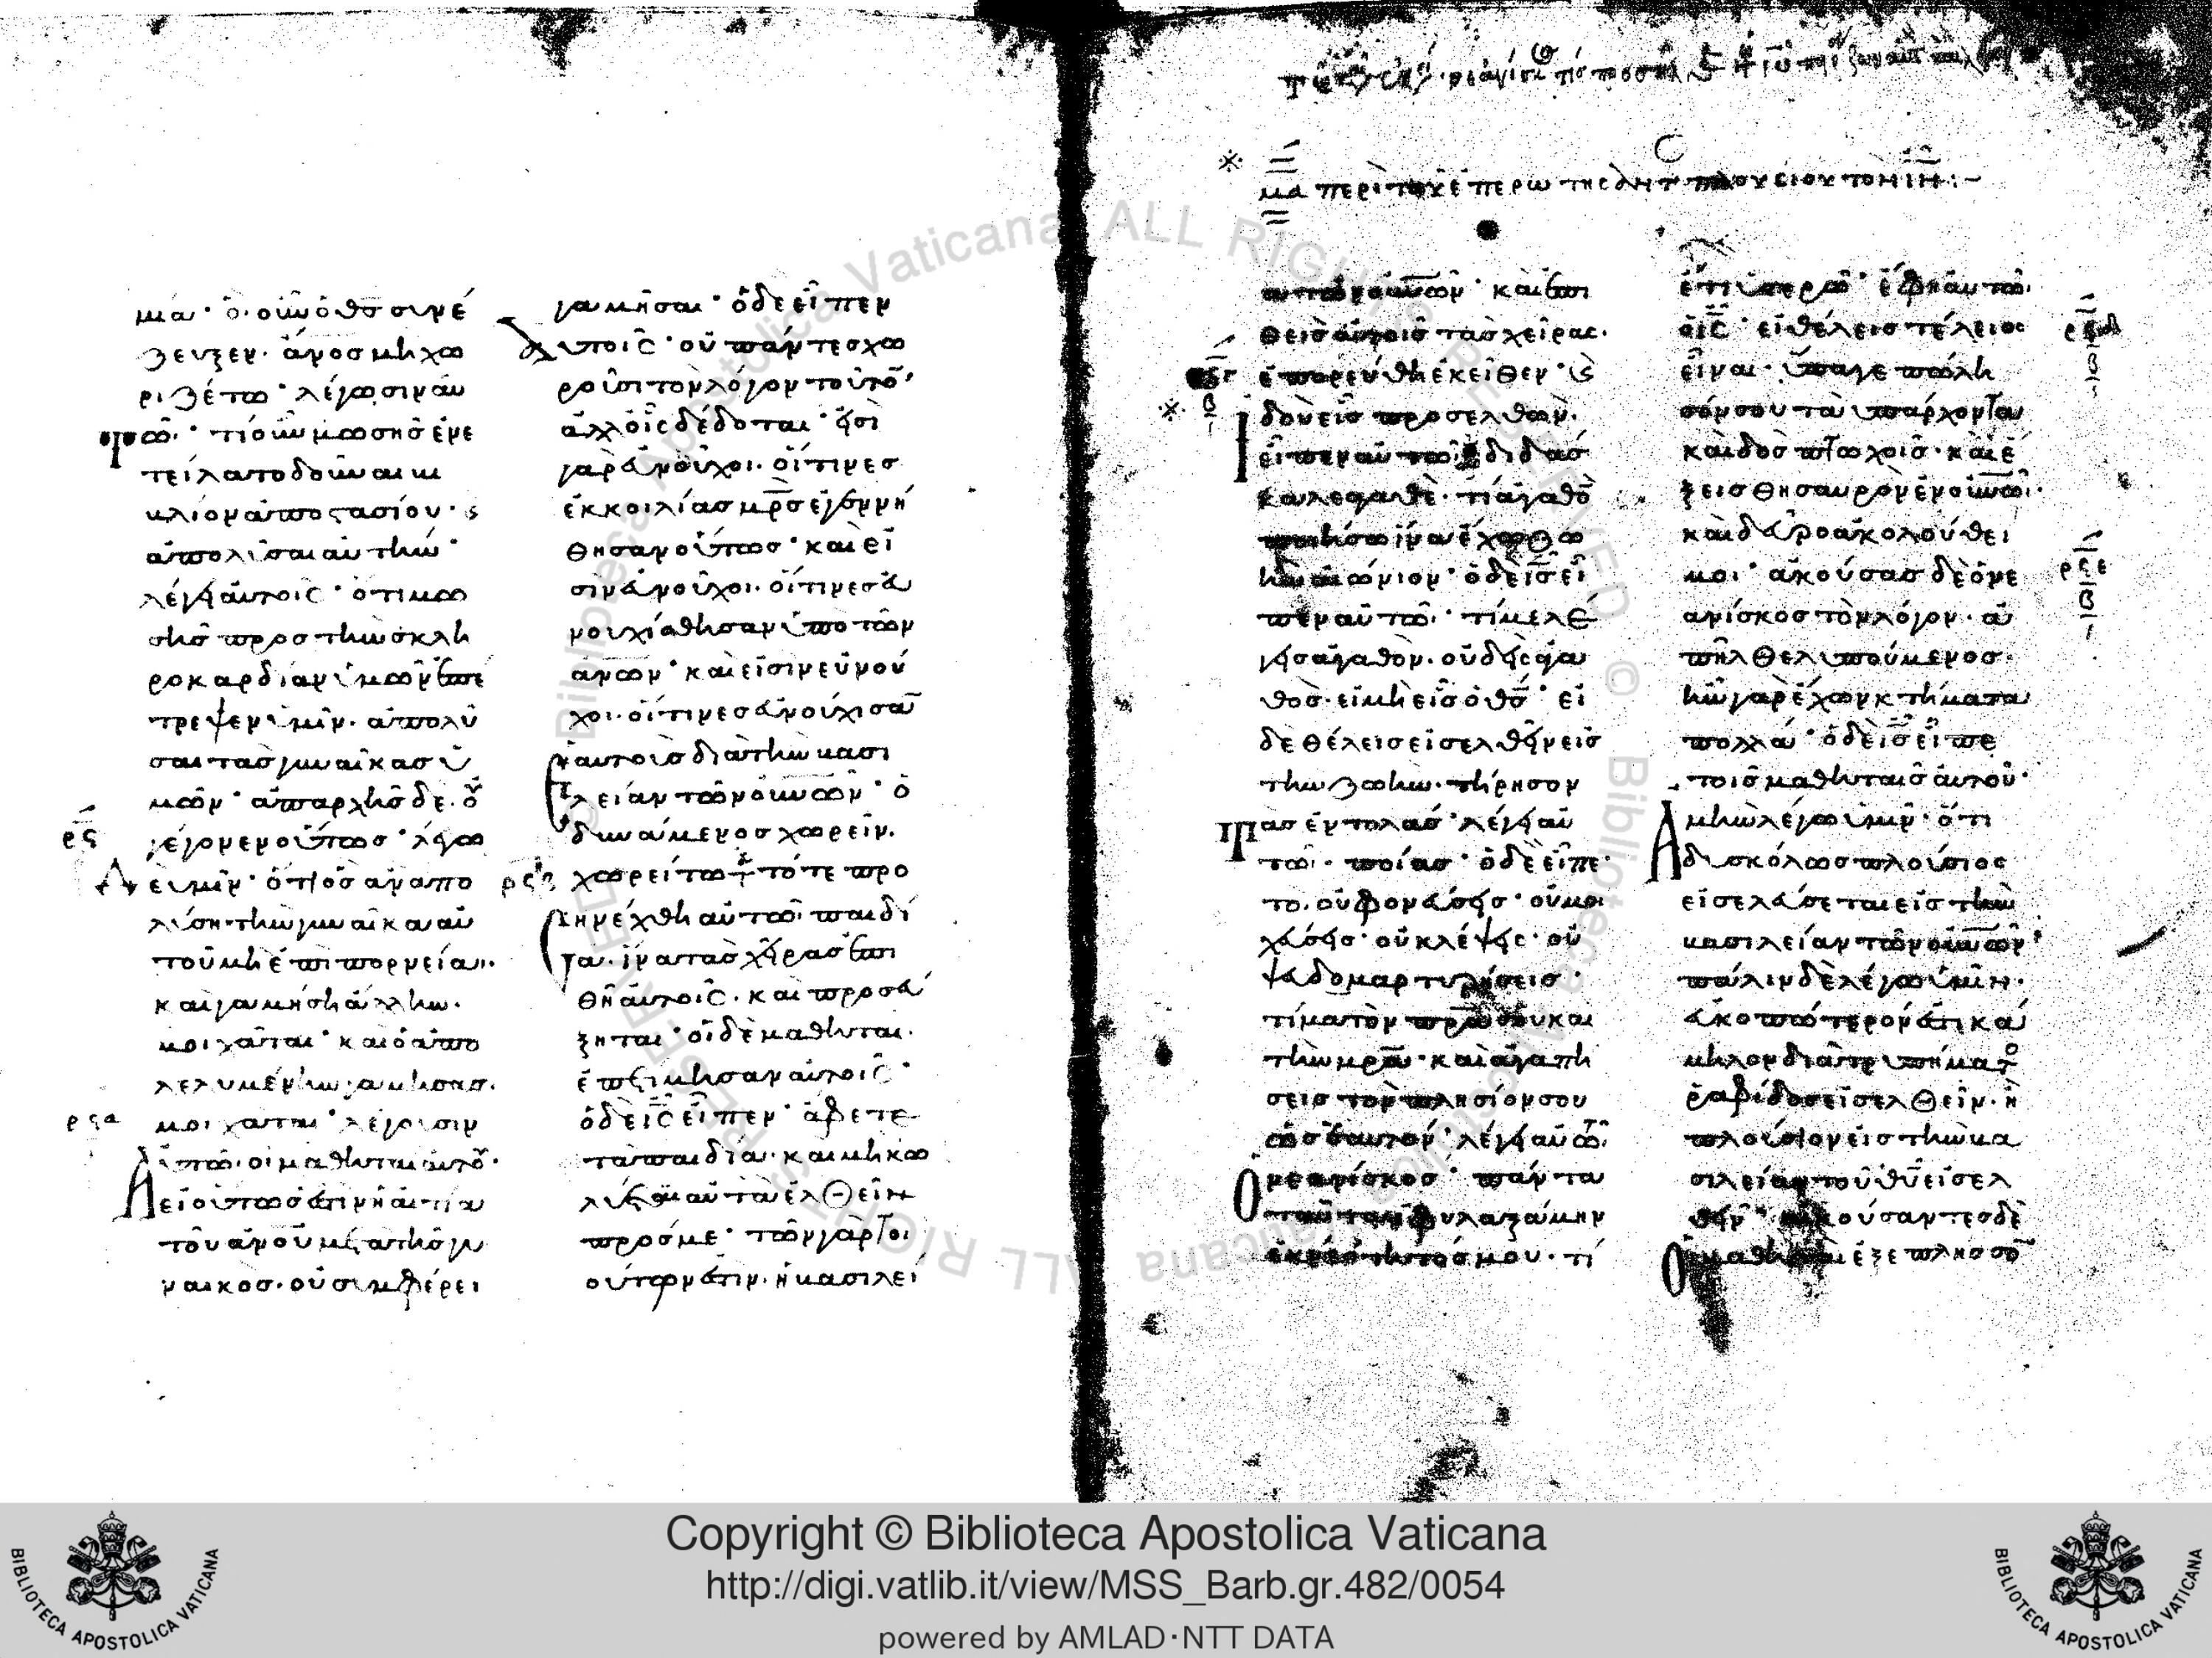 μα· ὁ οὖν ὁ θ̅ς̅ συνέ
ζευξεν· ἄν̅ο̅σ μὴ χω
ριζέτω· λέγωσιν αὐ
τῶ· τί οὖν μωσῆσ ἐνε
τείλατο δοῦναι βι
βλίον ἀποστασίου· ϗ
ἀπολύσαι αὐτὴν·
λέγει αὐτοῖς· ὅτι μω
σῆσ προσ τὴν σκλη
ροκαρδίαν ὑμῶν ἐπέ
τρεψεν ὑμῖν· ἀπολῦ
σαι τὰσ γυναῖκασ ὑ
μῶν· ἀπαρχῆσ δὲ· οὐ
ρϟ γέγονεν οὕτωσ· λέγω
δε ὑμῖν· ὅτι ὃσ ἂν ἀπο
λύση τὴν γυναῖκα αὐ
τοῦ μὴ ἐπὶ πορνεία·
καὶ γαμήση ἄλλην·
μοιχᾶται· καὶ ὁ ἀπο
λελυμένην γαμήσασ·
ρϟα μοιχᾶται· λέγουσιν
αὐτῶ· οἱ μαθηταὶ αὐτοῦ·
εἰ οὕτωσ ἐστιν ἡ αἰτία
τοῦ ἀν̅ο̅υ μετὰ τῆσ γυ
ναικοσ· οὐ συμφέρει
γαμῆσαι· ὁ δε εἶπεν
αὐτοῖς· οὐ πάντεσ χω
ροῦσι τον λόγον τοῦτο̅·
ἀλλ οἷς δέδοται· εἰσὶ
γὰρ εὐνοῦχοι· οἵτινεσ
ἐκ κοιλίασ μ̅ρ̅σ ἐγεννή
θησαν οὕτωσ· καὶ εἰ
σὶν εὐνοῦχοι· οἵτινεσ εὐ
νουχίσθησαν ὑπο τῶν
ἀν̅ω̅ν· καὶ εἰσὶν εὐνοῦ
χοι· οἵτινεσ εὐνούχισα̅
ἑαυτοὺσ διὰ τὴν βασι
λείαν τῶν οὐ̅ν̅ω̅ν· ὁ
δυνάμενοσ χωρεῖν·
ρϟβ χωρείτω· τότε προ
σηνέχθη αὐτῶ παιδί
α· ἵνα τὰσ χεῖρασ ἐπι
θῆ αὐτοῖς· και προσεύ
ξηται· οἱ δὲ μαθηταὶ·
ἐπετίμησαν αὐτοῖς·
ὁ δὲ ι̅ς̅ εἶπεν· ἄφετε
τὰ παιδία· καὶ μὴ κω
λύετε αὐτὰ ἐλθεῖν
πρόσ με· τῶν γὰρ τοι
ούτων ἐστιν· ἡ βασιλεί
μα περι του ἐπερωτησαντ πλουσιου τον ι̅ν̅ :-
α τῶν οὐ̅ν̅ω̅ν· καὶ ἐπι
θεὶσ αὐτοῖσ τὰσ χεῖρας·
ἐπορεύθη ἐκεῖθεν· ϗ
ἰδοὺ εἶσ προσελθὼν·
εἶπεν αὐτῶ διδάσ
καλε ἀγαθὲ· τί ἀγαθὸ̅
ποιήσω ἵνα ἔχω ζω
ὴν αἰώνιον· ὁ δὲ ι̅σ̅ εἶ
πεν αὐτῶ· τί με λέ
γεισ ἀγαθὸν· οὐδεὶς ἀγα
θὸσ· εἰ μὴ εἷσ ὁ θ̅σ̅· εἰ
δε θέλεισ εἰσελθεῖν εἰσ
τὴν ζωὴν· τήρησον
τασ ἐντολάσ· λέγει αὐ
τῶ· ποίασ· ὁ δὲ ι̅ς̅ εἶπε·
το· οὐ φονεύσεισ· οὐ μοι
χεύσεισ· οὐ κλέψεις· οὐ
ψευδομαρτυρήσεισ·
τίμα τὸν π̅ρ̅α σου και
τὴν μ̅ρ̅α· καὶ ἀγαπή
σεισ τὸν πλησίον σου
ὡσ ἑαυτον· λέγει αὐτῶ·
ὁ νεανίσκοσ· πάντα
ταῦτα ἐφυλαξάμην
ἐκ νεότητόσ μου· τί
ἔτι ὑστερῶ· ἔφη αὐτῶ·
ὁ ι̅ς̅· εἰ θέλεισ τέλειοσ
εἶναι· ὕπαγε πώλη
σόν σου τὰ ὑπάρχοντα
καὶ δὸσ πτωχοῖσ· καὶ ἕ
ξεισ θησαυρὸν ἐν οὐ̅ν̅ω̅·
καὶ δεῦρο ἀκολούθει
μοι· ἀκούσασ δὲ ὁ νε
ανίσκοσ τὸν λόγον· ἀ
πῆλθε λυπούμενοσ·
ἦν γὰρ ἔχων κτήματα
πολλά· ὁ δὲ ι̅σ̅ εἶπε
τοῖσ μαθηταῖσ αὐτοῦ·
ἀμὴν λέγω ὑμῖν· ὅτι
δυσκόλωσ πλούσιοσ
εἰσελεύσεται εἰσ τὴν
βασιλείαν τῶν οὐ̅ν̅ω̅ν·
πάλιν δὲ λέγω ὑμῖν·
εὐκοπώτερον ἐστι κά
μηλον διὰ τρυπήματο
ῥαφίδοσ εἰσελθεῖν· ἢ
πλούσιον εἰσ τὴν βα
σιλείαν τοῦ θ̅υ̅ εἰσελ
θεῖν· ἀκούσαντεσ δὲ
οἱ μαθηταὶ ἐξεπλήσσο̅
Copyright © Biblioteca Apostolica Vaticana
http://digi.vatlib.it/view/MSS_Barb.gr.482/0054
powered by AMLAD·NTT DATA
BIBLIOTECA APOSTOLICA VATICANA
BIBLIOTECA APOSTOLICA VATICANA